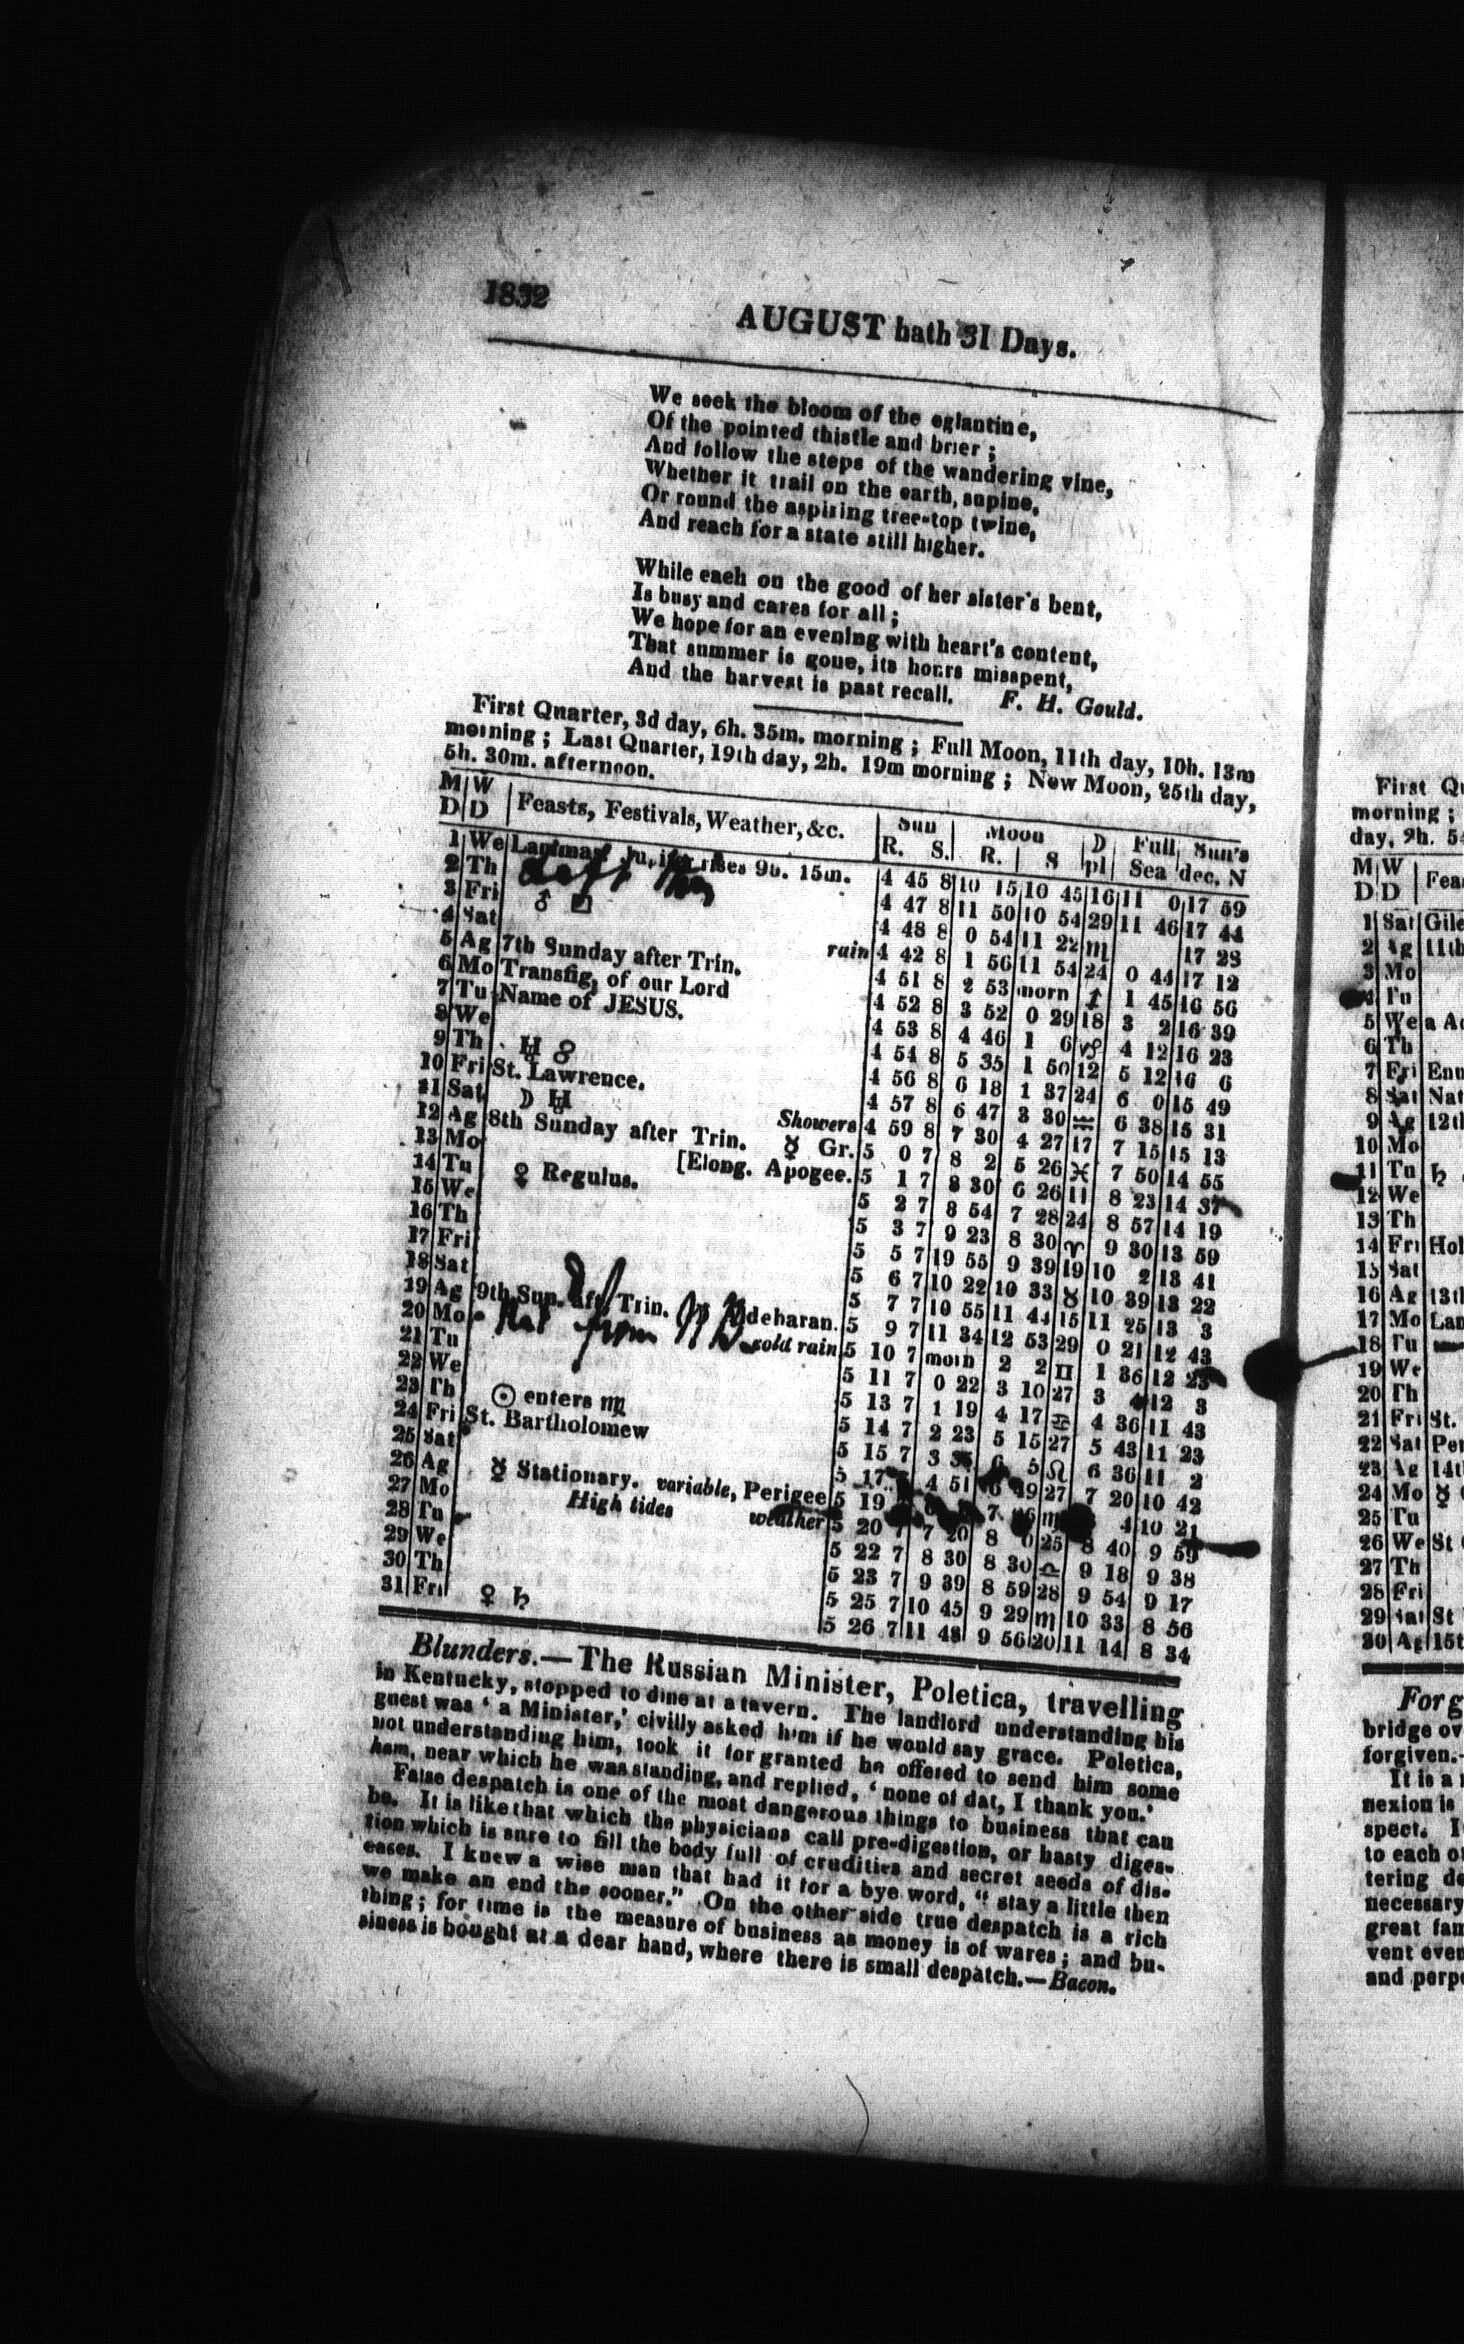 1832
AUGUST hath 31 Days.
We seek the bloom of the eglantine,
Of the pointed thistle and brier;
And follow the steps of the wandering vine,
Whether it trail on the earth, supine,
Or round the aspiring tree-top twine,
And reach for a state still higher.
While each on the good of her sister's bent,
Is busy and cares for all;
We hope for an evening with heart's content,
That summer is gone, its hours misspent,
And the harvest is past recall. F. H. Gould.
First Quarter, 3d day, 6h. 35m. morning; Full Moon, 11th day, 10h. 13m
morning; Last Quarter, 19th day, 2h. 19m morning; New Moon, 25th day,
5h. 30m. afternoon.
M W Feasts, Festivals, Weather, &c. Sun Moon D Full Sun's
D D R. S. R. S pl Sea dec. N
1 We rises 9h. 15m. 4 45 8 10 15 10 45 16 11 0 17 59
2 Th left 4 47 8 11 50 10 54 29 11 46 17 44
3 Fri ♂ 4 48 8 0 54 11 22 ♏ 17 28
4 Sat rain 4 42 8 1 56 11 54 24 0 44 17 12
5 Ag 7th Sunday after Trin. 4 51 8 2 53 morn ♐ 1 45 16 56
6 Mo Transfig, of our Lord 4 52 8 3 52 0 29 18 3 2 16 39
7 Tu Name of JESUS. 4 53 8 4 46 1 6 ♑ 4 12 16 23
8 We 4 54 8 5 35 1 50 12 5 12 16 6
9 Th ♅ ☍ 4 56 8 6 18 1 37 24 6 0 15 49
10 Fri St. Lawrence. 4 57 8 6 47 3 30 ♒ 6 38 15 31
11 Sat ☽ ♅ Showers 4 59 8 7 30 4 27 17 7 15 15 13
12 Ag 8th Sunday after Trin. ☿ Gr. 5 0 7 8 2 5 26 ♓ 7 50 14 55
13 Mo [Elong. Apogee. 5 1 7 8 30 6 26 11 8 23 14 37
14 Tu ♀ Regulus. 5 2 7 8 54 7 28 24 8 57 14 19
15 We 5 3 7 9 23 8 30 ♈ 9 30 13 59
16 Th 5 5 7 19 55 9 39 19 10 2 13 41
17 Fri 5 6 7 10 22 10 33 ♉ 10 39 13 22
18 Sat 5 7 7 10 55 11 44 15 11 25 13 3
19 Ag 9th Sun. aft. Trin. Aldebaran. 5 9 7 11 34 12 53 29 0 21 12 43
20 Mo from N B cold rain 5 10 7 morn 2 2 ♊ 1 36 12 23
21 Tu 5 11 7 0 22 3 10 27 3 4 12 3
22 We 5 13 7 1 19 4 17 ♋ 4 36 11 43
23 Th ☉ enters ♍ 5 14 7 2 23 5 15 27 5 43 11 23
24 Fri St. Bartholomew 5 15 7 3 6 5 ♌ 6 36 11 2
25 Sat 5 17 4 51 27 7 20 10 42
26 Ag ☿ Stationary. variable, Perigee 5 19 7 4 10 21
27 Mo High tides weather 5 20 7 7 20 8 0 25 8 40 9 59
28 Tu 5 22 7 8 30 8 30 ♎ 9 18 9 38
29 We 5 23 7 9 39 8 59 28 9 54 9 17
30 Th 5 25 7 10 45 9 29 ♏ 10 33 8 56
31 Fri ♀ ♄ 5 26 7 11 48 9 56 20 11 14 8 34
Blunders.—The Russian Minister, Poletica, travelling
in Kentucky, stopped to dine at a tavern. The landlord understanding his
guest was ‘a Minister,’ civilly asked him if he would say grace. Poletica,
not understanding him, took it for granted he offered to send him some
ham, near which he was standing, and replied, ‘none of dat, I thank you.’
False despatch is one of the most dangerous things to business that can
be. It is like that which the physicians call pre-digestion, or hasty diges-
tion which is sure to fill the body full of crudities and secret seeds of dis-
eases. I knew a wise man that had it for a bye word, “stay a little then
we make an end the sooner.” On the other side true despatch is a rich
thing; for time is the measure of business as money is of wares; and bu-
siness is bought at a dear hand, where there is small despatch.—Bacon.
First Qu
morning;
day, 9h. 54
M W Feas
D D
1 Sat Gile
2 Ag 11th
3 Mo
4 Tu
5 We a Ac
6 Th
7 Fri Enu
8 Sat Nat
9 Ag 12th
10 Mo
11 Tu ♄
12 We
13 Th
14 Fri Hol
15 Sat
16 Ag 13th
17 Mo Lam
18 Tu
19 We
20 Th
21 Fri St.
22 Sat Per
23 Ag 14th
24 Mo ☿
25 Tu
26 We St
27 Th
28 Fri
29 Sat St
30 Ag 15t
Forg
bridge ov
forgiven.-
It is a
nexion is
spect.
to each ot
tering de
necessary
great fam
vent even
and perpe